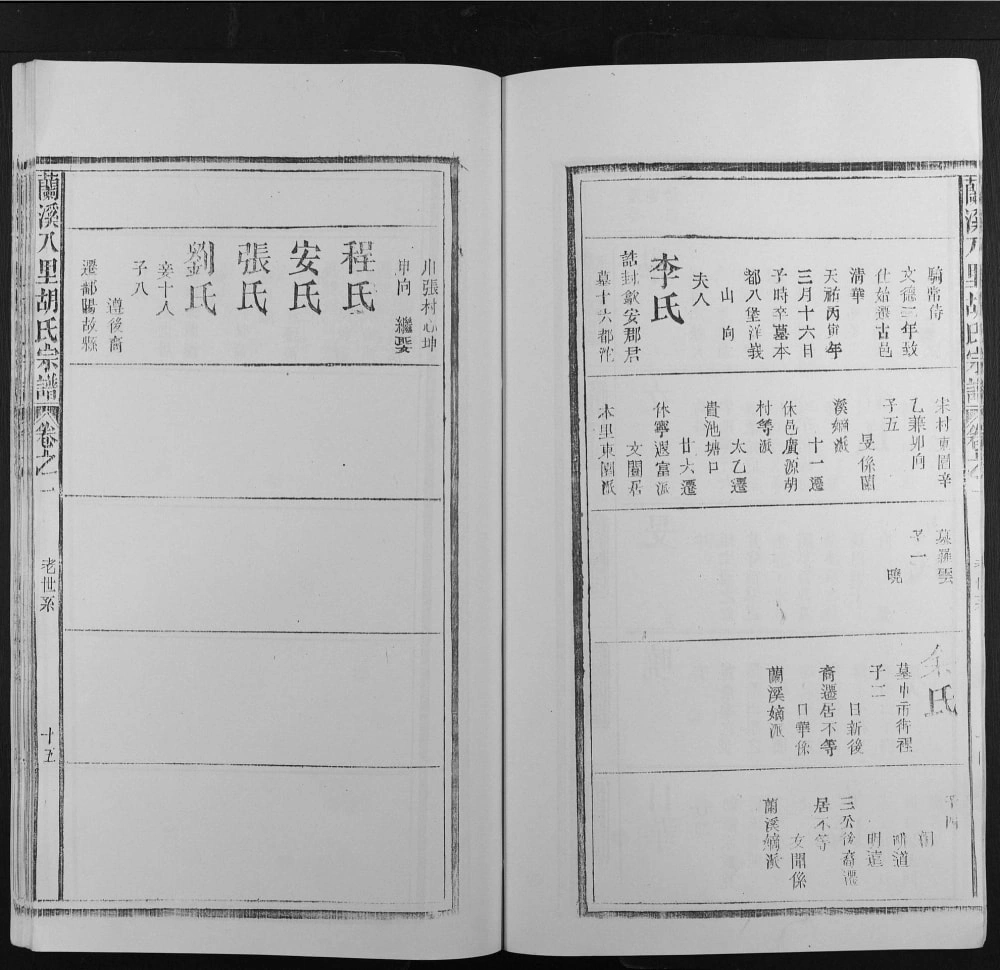 蘭溪八里胡氏宗譜
騎常侍
文德三年致
仕始遷古邑
清華
天祐丙寅年
三月十六日
子時卒墓本
都八堡洋義
山向
夫人
李氏
誥封歙安郡君
墓十六都沈
宋村東園辛
乙兼卯向
子五
旻係蘭
溪嫡派
十一遷
休邑廣源胡
村等派
太乙遷
貴池塘口
廿六遷
休寧遐富派
文闓居
木里東園派
墓羅雲
子一
曉
余氏
墓中市街裡
子二
日新後
裔遷居不等
日華係
蘭溪嫡派
子四
明道
明遠
三公後裔遷
居不等
文聞係
蘭溪嫡派
川張村心坤
坤向 繼娶
程氏
安氏
張氏
劉氏
妾十人
子八
遵後裔
遷鄱陽故縣
蘭溪八里胡氏宗譜
卷之一
老世系
十五